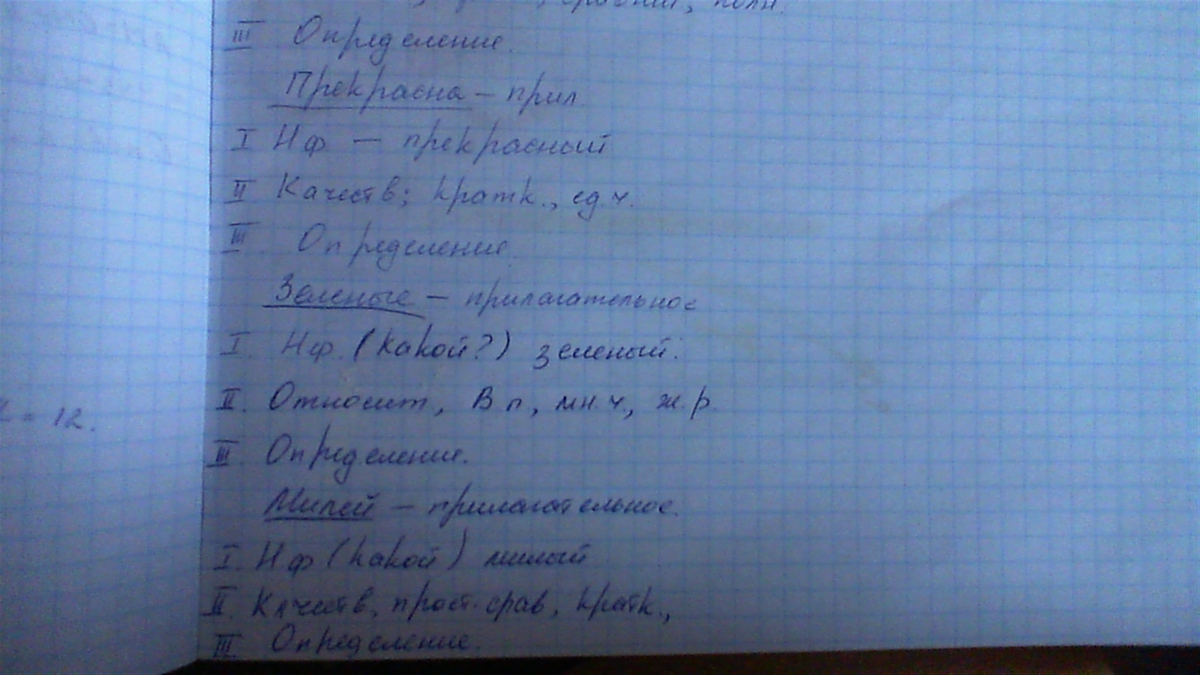 полн.
III Определение.
Прекрасна – прил
I Н ф – прекрасный
II Качеств; кратк., ед.ч.
III Определение.
Зеленые – прилагательное
I. Нф. (какой?) зеленый.
II. Относит, В п, мн.ч, ж.р.
III. Определение.
Милей – прилагательное.
= 12.
I. Н ф (какой) милый
II. Качеств, прост. срав, кратк.,
III Определение.